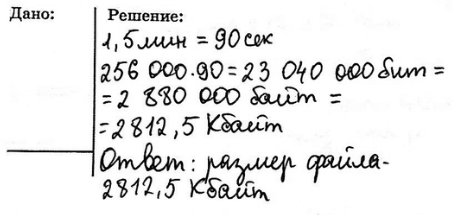 Дано: Решение:
1,5 мин = 90 сек
256 000·90 = 23 040 000 бит =
= 2 880 000 байт =
= 2812,5 Кбайт
Ответ: размер файла-
2812,5 Кбайт